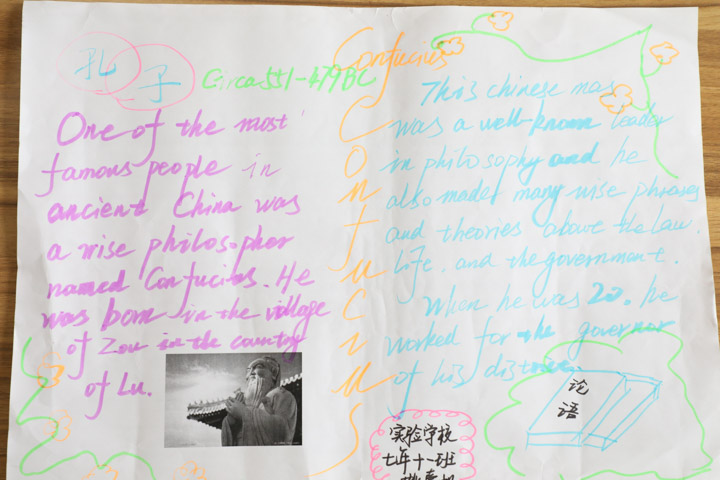 孔子
Circa 551-479BC
Confucius
One of the most
famous people in
ancient China was
a wise philosopher
named Confucius. He
was born in the village
of Zou in the country
of Lu.
Confucius
This chinese man
was a well-known leader
in philosophy and he
also made many wise phrases
and theories about the law.
Life. and the government.
When he was 20. he
worked for the governor
of his district.
论语
实验学校
七年十一班